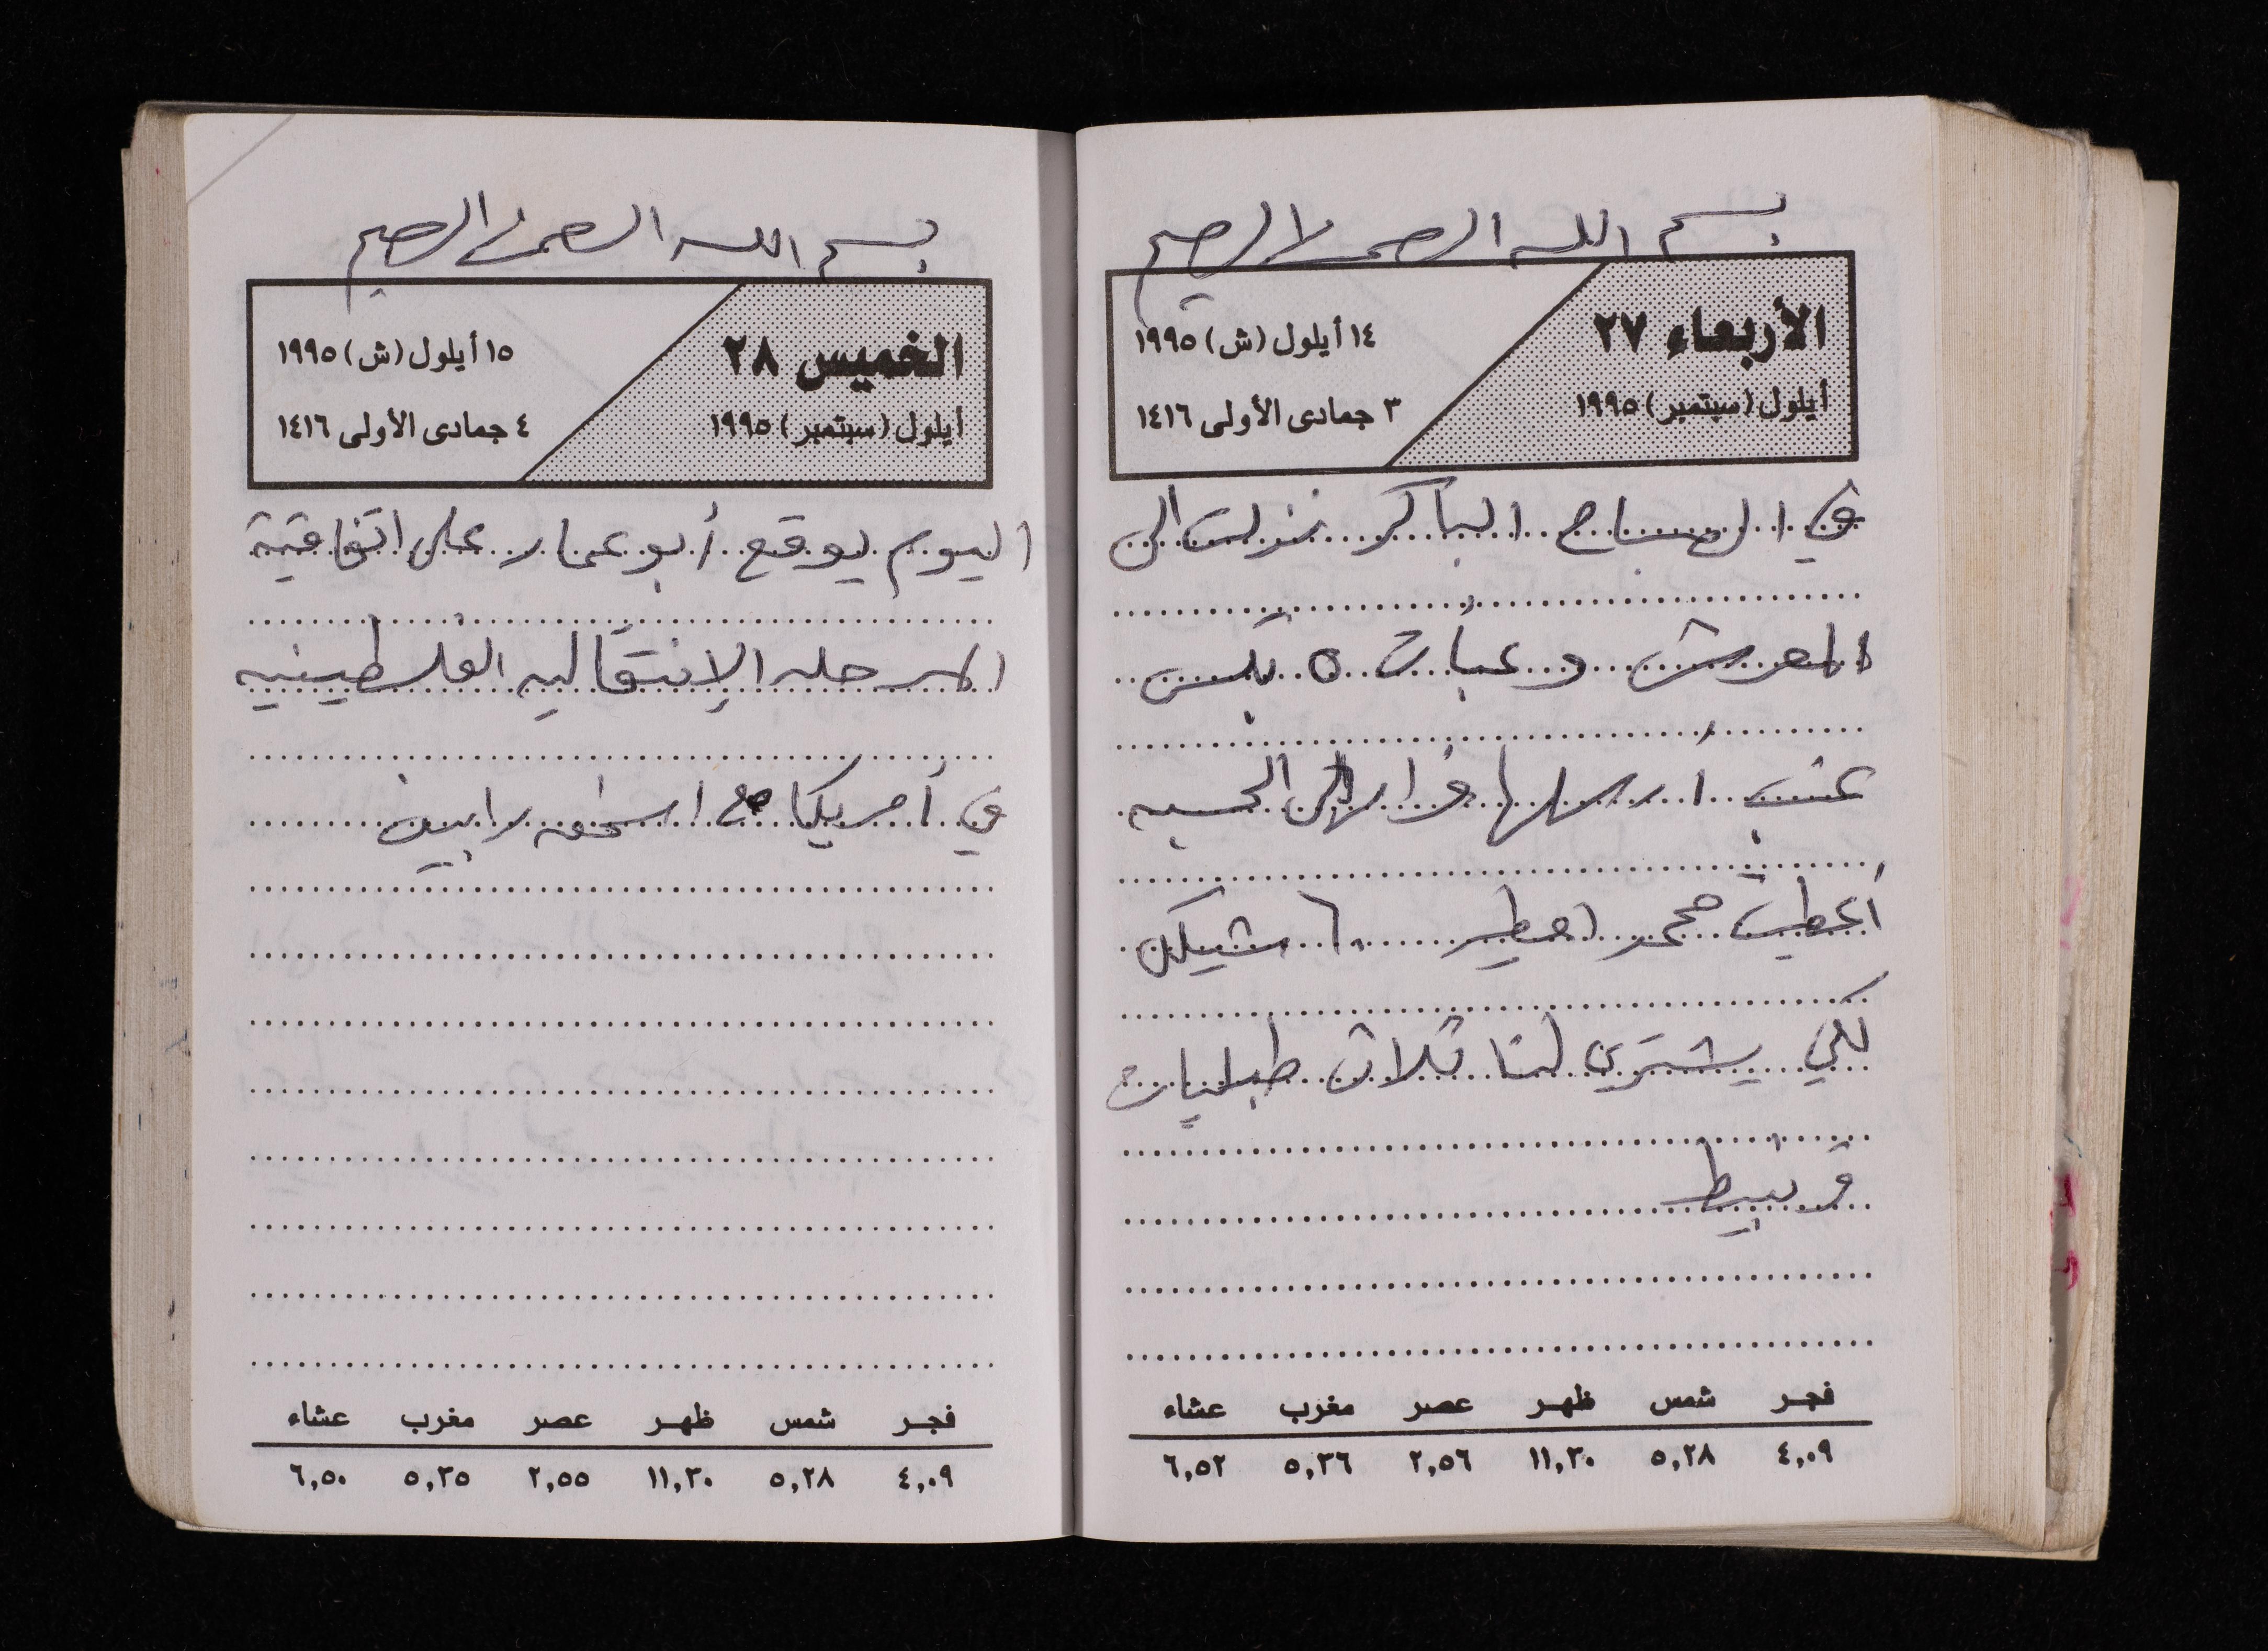 بسم الله الرحمن الرحيم
الأربعاء ٢٧
أيلول (سبتمبر) ١٩٩٥
١٤ أيلول (ش) ١٩٩٥
٣ جمادى الأولى ١٤١٦
في الصباح الباكر نزلت الى
المعرش وعبأت ٥ بكس
عنب ارسلها فواز الى الحسبه
أعطيت محمد امطير ٦٠ شيكل
لكي يشتري لنا ثلاث طبليات
قرنبيط
فجر شمس ظهر عصر مغرب عشاء
٤,٠٩ ٥,٢٨ ١١,٣٠ ٢,٥٦ ٥,٣٦ ٦,٥٢
بسم الله الرحمن الرحيم
الخميس ٢٨
أيلول (سبتمبر) ١٩٩٥
١٥ أيلول (ش) ١٩٩٥
٤ جمادى الأولى ١٤١٦
اليوم يوقع أبو عمار على اتفاقية
المرحله الإنتقاليه الفلسطينيه
في أمريكا مع اسحق رابين
فجر شمس ظهر عصر مغرب عشاء
٤,٠٩ ٥,٢٨ ١١,٣٠ ٢,٥٥ ٥,٣٥ ٦,٥٠